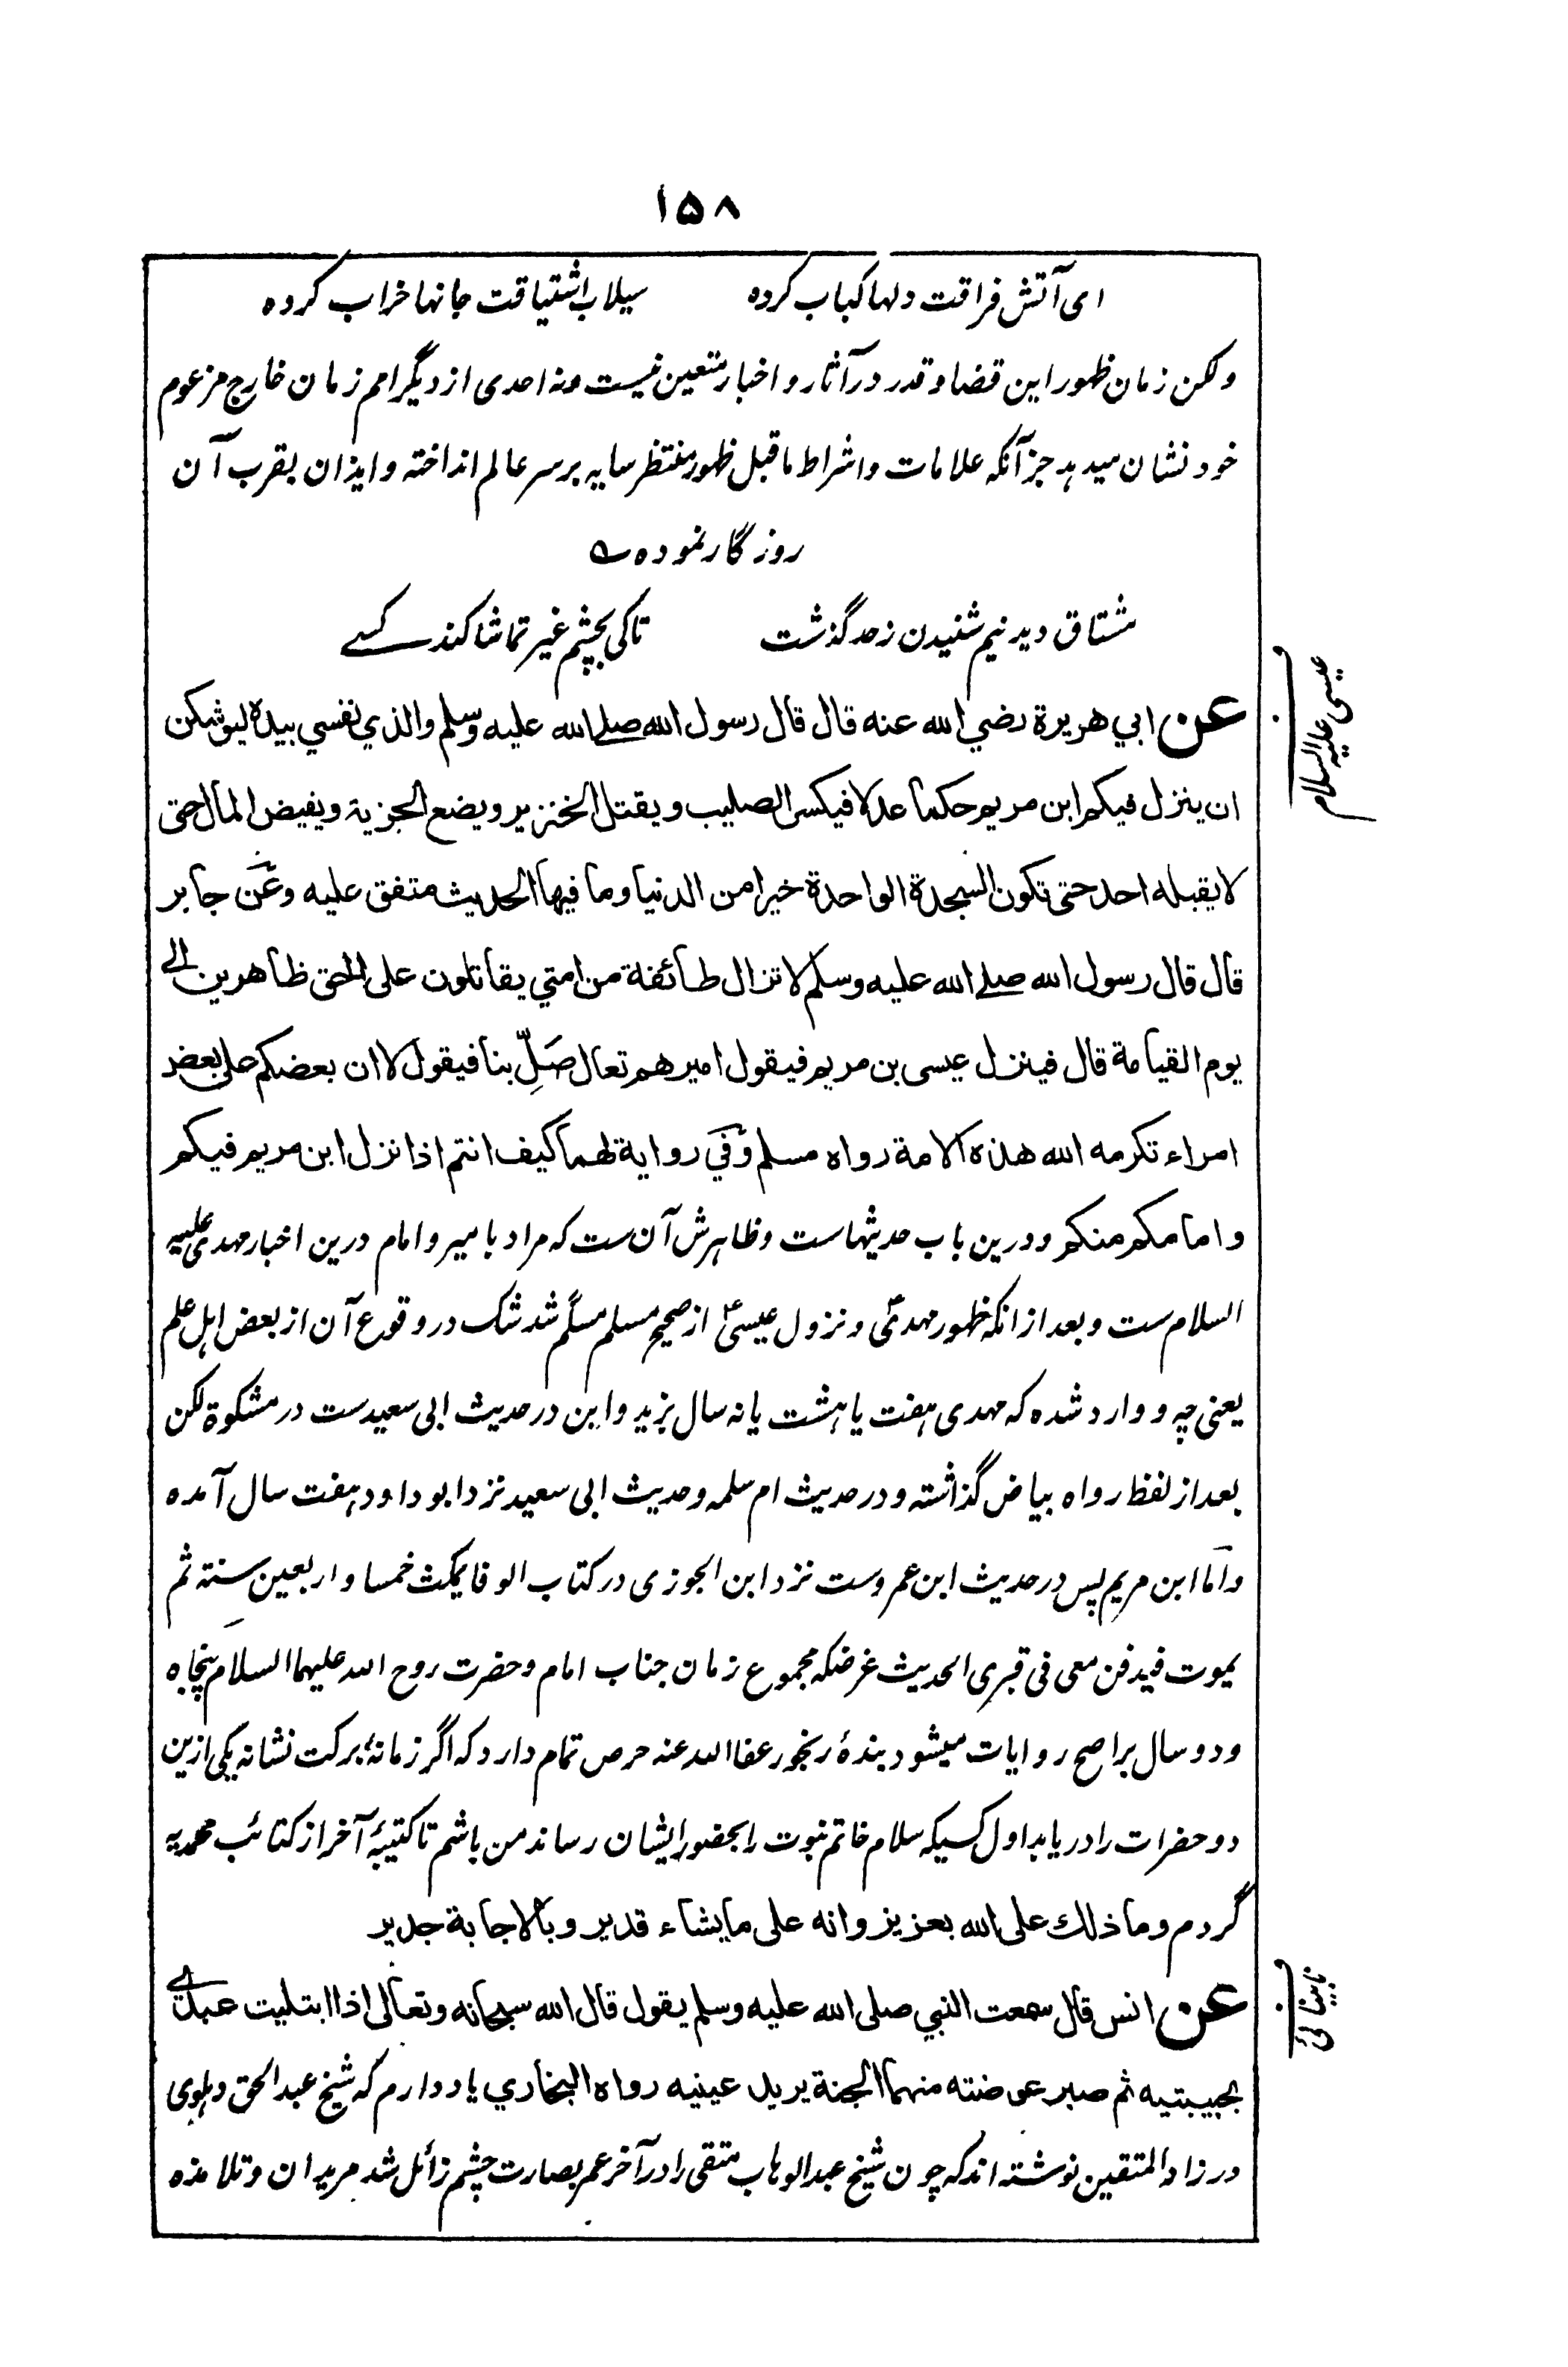 ۱۵۸
ای آتش فراقت دلها کباب کرده سیلاب اشتیاقت جانها خراب کرده
ولکن زمان ظهور این قضا و قدر در آثار و اخبار متعین نیست ونه احدی از دیگر امم زمان خارج مزعوم
خود نشان میدهد جز آنکه علامات واشراط ماقبل ظهور منتظر سایه بر سر عالم انداخته وایذان بقرب آن
روزگار نموده ؎
مشتاق دیدنیم شنیدن زحد گذشت تا کی بچشم غیر تماشا کند کسے
عن ابي هريرة رضي الله عنه قال قال رسول الله صلے الله عليه وسلم والذي نفسي بيده ليوشكن
ان ينزل فيكم ابن مريم حكما عدلا فيكسر الصليب ويقتل الخنزير ويضع الجزية ويفيض المال حتى
لا يقبله احد حتى تكون السجدة الواحدة خيرا من الدنيا وما فيها الحديث متفق عليه وعن جابر
قال قال رسول الله صلے الله عليه وسلم لا تزال طائفة من امتي يقاتلون على الحق ظاهرين الے
يوم القيامة قال فينزل عيسى بن مريم فيقول اميرهم تعال صَلِّ بنا فيقول لا ان بعضكم على بعض
امراء تكرمه الله هذه الامة رواه مسلم وفي رواية لهما كيف انتم اذا نزل ابن مريم فيكم
وامامكم منكم ودرین باب حدیثهاست وظاهرش آن ست که مراد بامیر وامام درین اخبار مهدی علیه
السلام ست وبعد ازانکه ظهور مهدیؑ ونزول عیسیؑ از صحیح مسلم مسلّم شد شک در وقوع آن از بعض اهل علم
یعنی چه ووارد شده که مهدی هفت یا هشت یا نه سال بزید واین در حدیث ابی سعید ست در مشکوة لکن
بعد از لفظ رواه بیاض گذاشته ودر حدیث ام سلمه وحدیث ابی سعید نزد ابو داود هفت سال آمده
واما ابن مریم پس در حدیث ابن عمرو ست نزد ابن الجوزی در کتاب الوفا یمکث خمسا واربعین سنة ثم
یموت فیدفن معی فی قبری الحدیث غرضکه مجموع زمان جناب امام وحضرت روح الله علیهما السلام پنجاه
ودو سال بر اصح روایات میشود بندۀ رنجور عفا الله عنه حرص تمام دارد که اگر زمانۀ برکت نشانه یکی ازین
دو حضرات را دریابد اول کسیکه سلام خاتم نبوت را بحضور ایشان رساند من باشم تا کتیبۀ آخر از کتائب محمدیه
گردم وما ذلك على الله بعزيز وانه على ما يشاء قدير وبالاجابة جدير
عن انس قال سمعت النبي صلى الله عليه وسلم يقول قال الله سبحانه وتعالى اذا ابتليت عبدے
بحبيبتيه ثم صبر عوضته منهما الجنة يريد عينيه رواه البخاري یاد دارم که شیخ عبدالحق دهلوی
در زاد المتقین نوشته اند که چون شیخ عبدالوهاب متقی را در آخر عمر بصارت چشم زائل شد مریدان وتلامذه
عیسی علیہ السلام
نابینائی